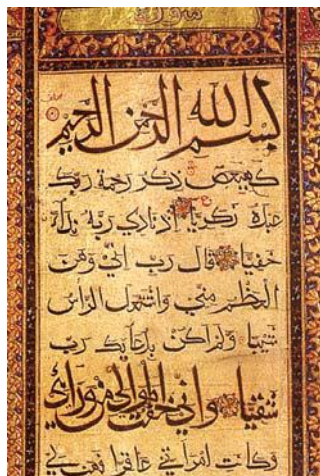 بسم الله الرحمن الرحيم
كهيعص ذكر رحمة ربك
عبده زكريا إذ نادى ربه نداء
خفيا قال رب اني وهن
العظم مني واشتعل الراس
شيبا ولم اكن بدعائك رب
شقيا واني خفت الموالي من وراي
وكانت امراتي عاقرا فهب لي